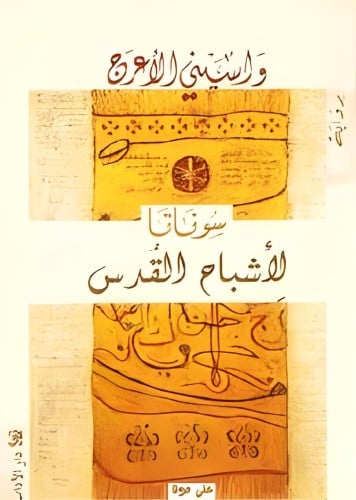 واسيني الأعرج
رواية
سوناتا
لأشباح القُدس
دار الآداب